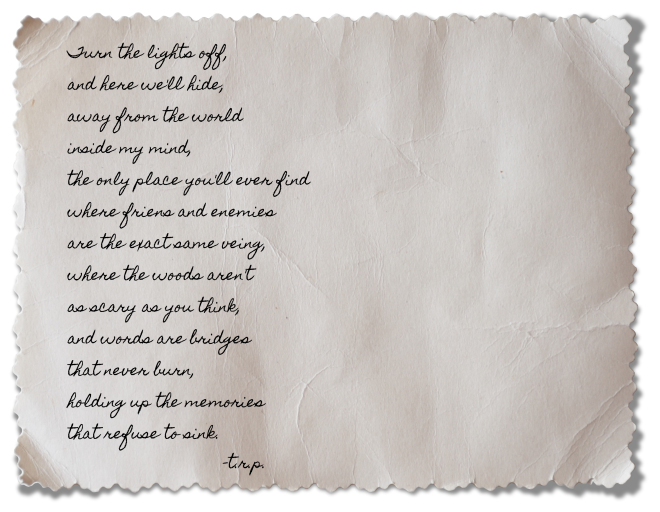 Turn the lights off,
and here we'll hide,
away from the world
inside my mind,
the only place you'll ever find
where friens and enemies
are the exact same veing,
where the woods aren't
as scary as you think,
and words are bridges
that never burn,
holding up the memories
that refuse to sink.
-t.r.p.